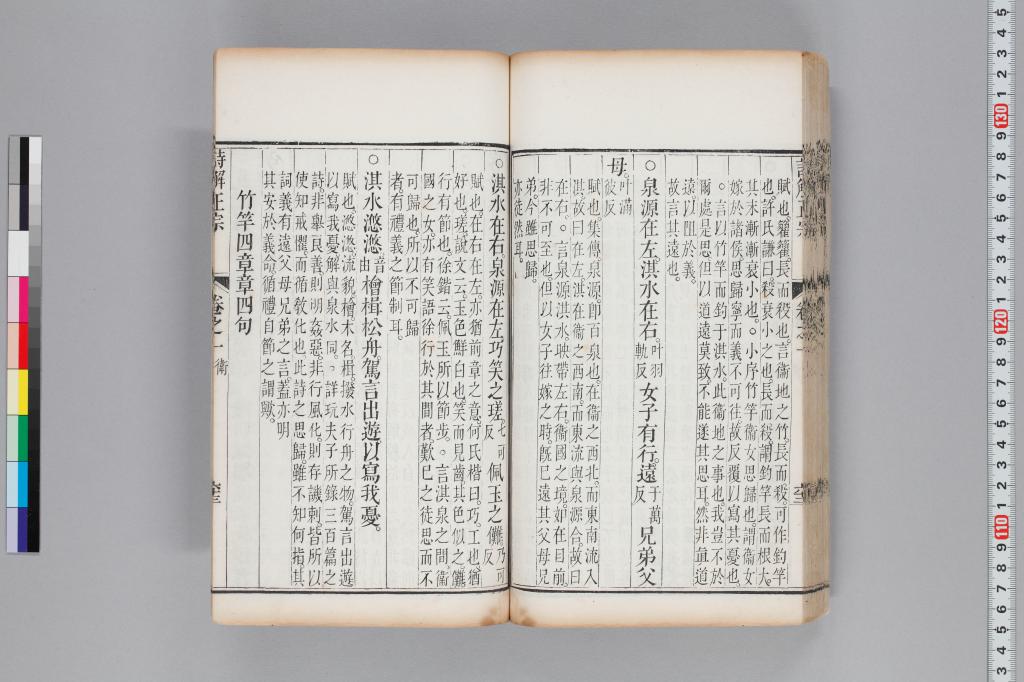 賦也。籊籊長而殺也。言衞地之竹。長而殺。可作釣竿
也。許氏謙曰。殺衰小之也。長而殺。謂釣竿長而根大。
其末漸漸衰小也。○小序竹竿衞女思歸也。謂衞女
嫁於諸侯思歸寧而義不可往故反覆以寫其憂也
○言以竹竿而釣于淇水。此衞地之事也。我豈不於
爾處是思。但以道遠莫致。不能遂其思耳。然非眞道
遠。以阻於義。
故言其遠也。
○泉源在左淇水在右。叶羽軌反女子有行。遠于萬反兄弟父
母。叶滿彼反
賦也。集傳泉源。卽百泉也。在衞之西北。而東南流入
淇故曰在左。淇在衞之西南。而東流與泉源合故曰
在右。○言泉源淇水。映帶左右。衞國之境。如在目前。
非不可至也。但以女子往嫁之時。旣已遠其父母兄
弟。今雖思歸。
亦徒然耳。
○淇水在右泉源在左巧笑之瑳七可反佩玉之儺乃可反
賦也。在右在左。亦猶前章之意。何氏楷曰。巧。工也。猶
好也。瑳。說文云。玉色鮮白也。笑而見齒其色似之。儺
行有節也。徐鍇云。佩玉所以節步。○言淇泉之間。衞
國之女。亦有笑語徐行於其間者歎已之徒思而不
可歸也。所以不可歸
者有禮義之節制耳。
○淇水滺滺音由檜楫松舟駕言出遊以寫我憂。
賦也。滺滺。流貌檜。木名。楫。撥水行舟之物。駕言出遊
以寫我憂。解與泉水同。○詳玩夫子所錄三百篇之
詩。非舉良善則明姦惡。非行風化。則存譏刺。皆所以
使知戒懼。而循敎化也。此詩之思歸雖不知何指。其
詞義有遠父母兄弟之言。蓋亦明
其安於義命循禮自節之謂歟。
竹竿四章章四句
詩解正宗　卷之一　衞